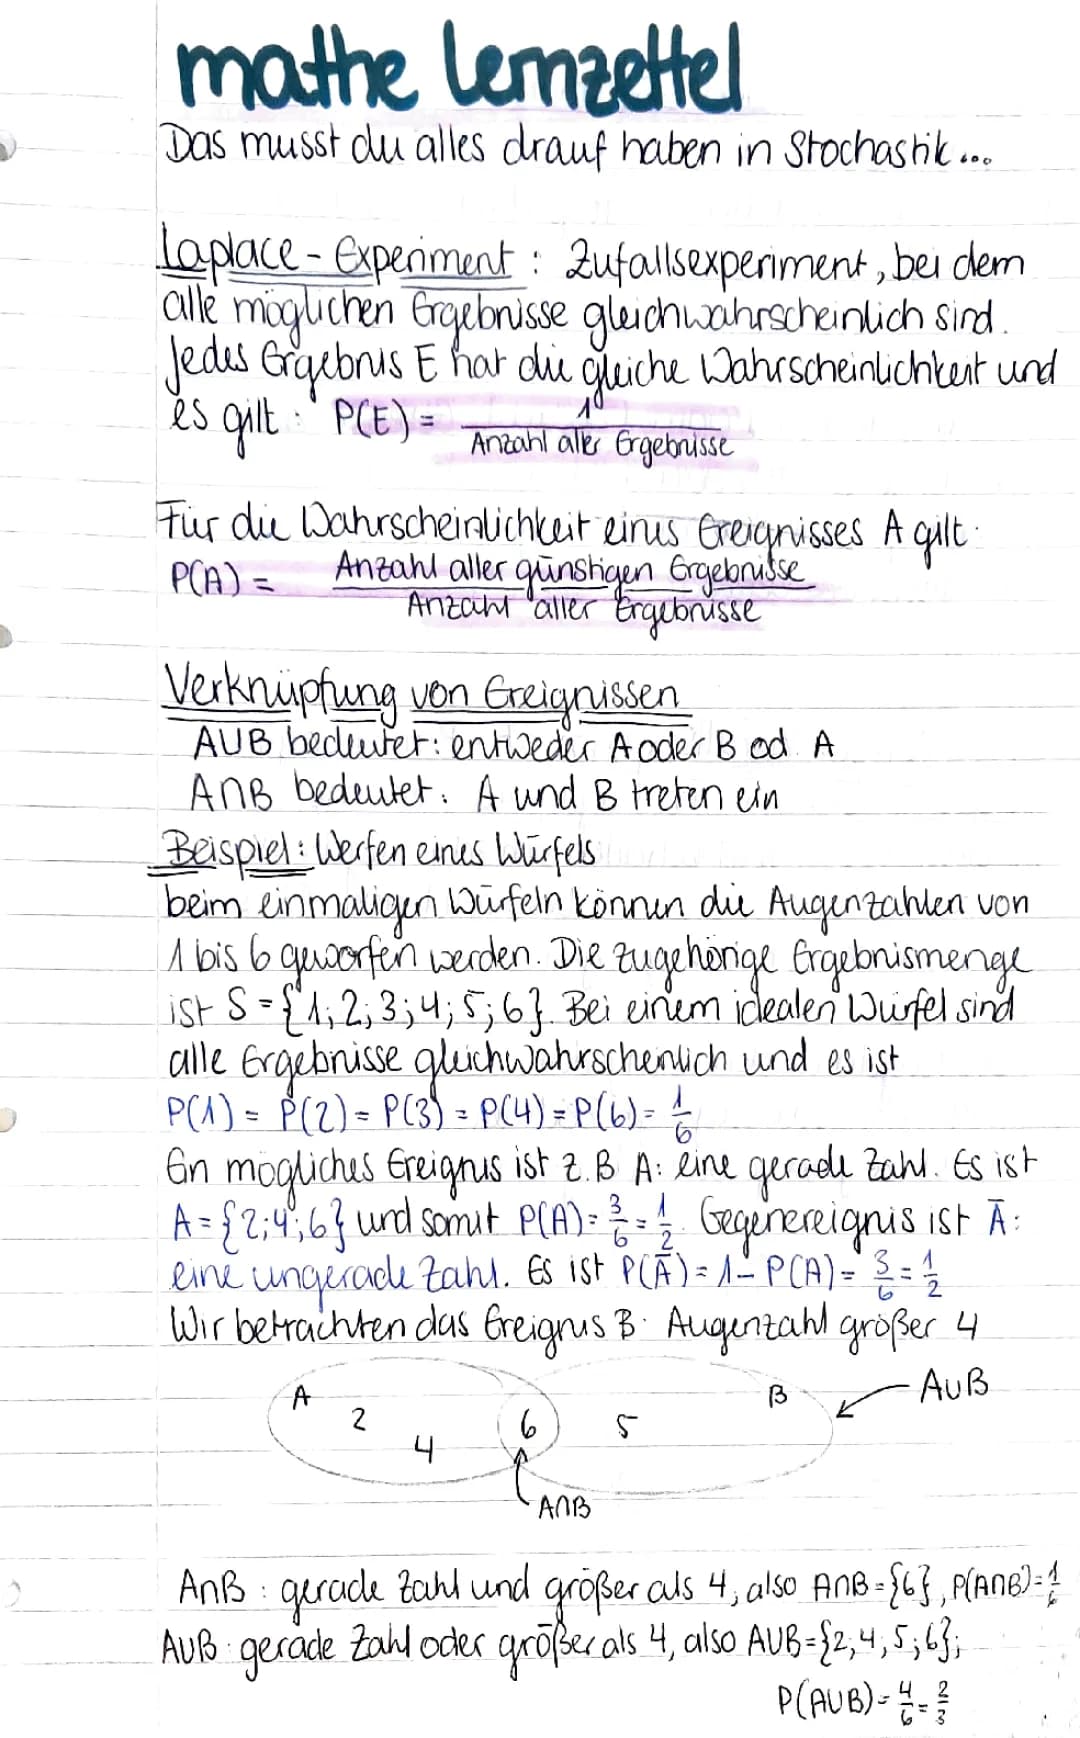 mathe lernzettel
Das musst du alles drauf haben in Stochastik...
Laplace-Experiment: Zufallsexperiment, bei dem
alle möglichen Ergebnisse gleichwahrscheinlich sind.
Jedes Ergebnis E hat die gleiche Wahrscheinlichkeit und
es gilt: P(E) = 1 / Anzahl aller Ergebnisse
Für die Wahrscheinlichkeit eines Ereignisses A gilt:
P(A) = Anzahl aller günstigen Ergebnisse / Anzahl aller Ergebnisse
Verknüpfung von Ereignissen
A∪B bedeutet: entweder A oder B od. A
A∩B bedeutet: A und B treten ein
Beispiel: Werfen eines Würfels
beim einmaligen Würfeln können die Augenzahlen von
1 bis 6 geworfen werden. Die zugehörige Ergebnismenge
ist S = {1; 2; 3; 4; 5; 6}. Bei einem idealen Würfel sind
alle Ergebnisse gleichwahrschenlich und es ist
P(1) = P(2) = P(3) = P(4) = P(6) = 1/6
Ein mögliches Ereignis ist z.B A: eine gerade Zahl. Es ist
A = {2; 4; 6} und somit P(A) = 3/6 = 1/2. Gegenereignis ist Ā:
eine ungerade Zahl. Es ist P(Ā) = 1 - P(A) = 3/6 = 1/2
Wir betrachten das Ereignis B: Augenzahl größer 4
A B A∪B
2 6 5
4
A∩B
A∩B: gerade Zahl und größer als 4, also A∩B = {6}, P(A∩B) = 1/6
A∪B: gerade Zahl oder größer als 4, also A∪B = {2; 4; 5; 6};
P(A∪B) = 4/6 = 2/3